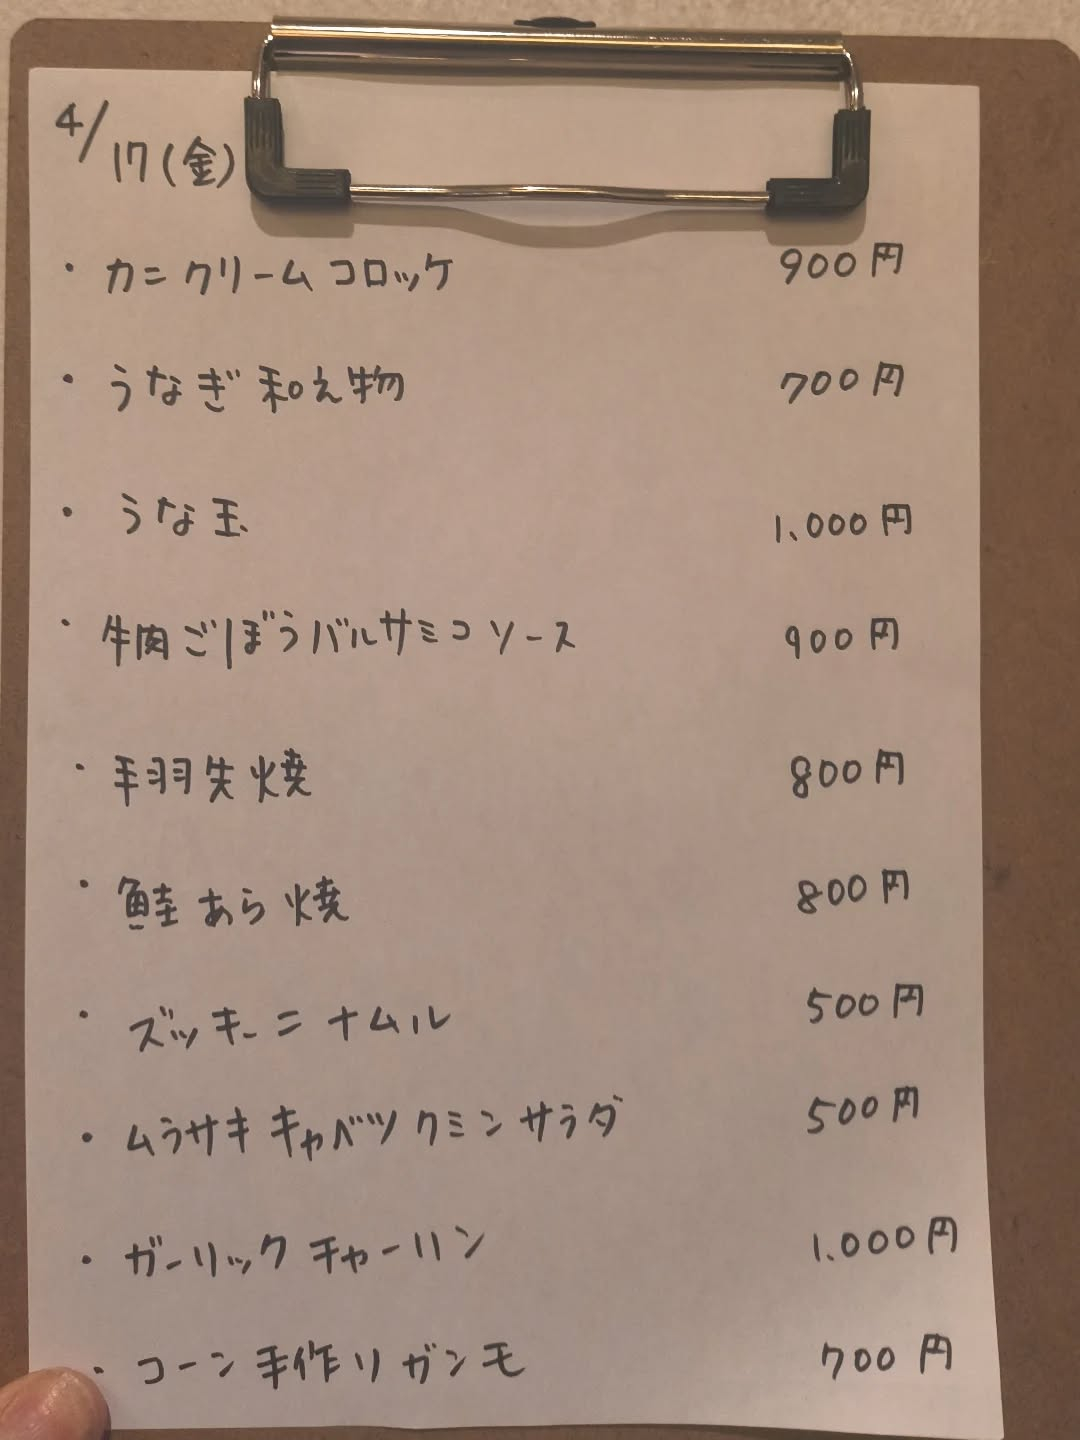 4/17(金)
・カニクリームコロッケ 900円
・うなぎ和え物 700円
・うな玉 1,000円
・牛肉ごぼうバルサミコソース 900円
・手羽先焼 800円
・鮭あら焼 800円
・ズッキーニナムル 500円
・ムラサキキャベツクミンサラダ 500円
・ガーリックチャーハン 1,000円
・コーン手作りガンモ 700円